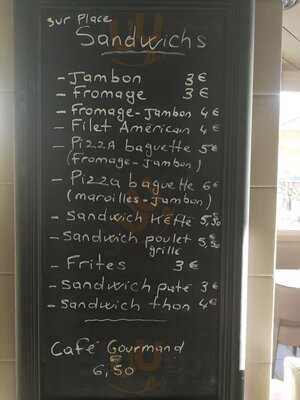 sur Place
Sandwichs
- Jambon 3€
- Fromage 3€
- Fromage-Jambon 4€
- Filet Américan 4€
- Pizza baguette 5€
(fromage-Jambon)
- Pizza baguette 6€
(maroilles-Jambon)
- Sandwich Kefte 5,50
- Sandwich poulet 5,50
grillé
- Frites 3€
- Sandwich paté 3€
- Sandwich thon 4€
Café Gourmand
6,50